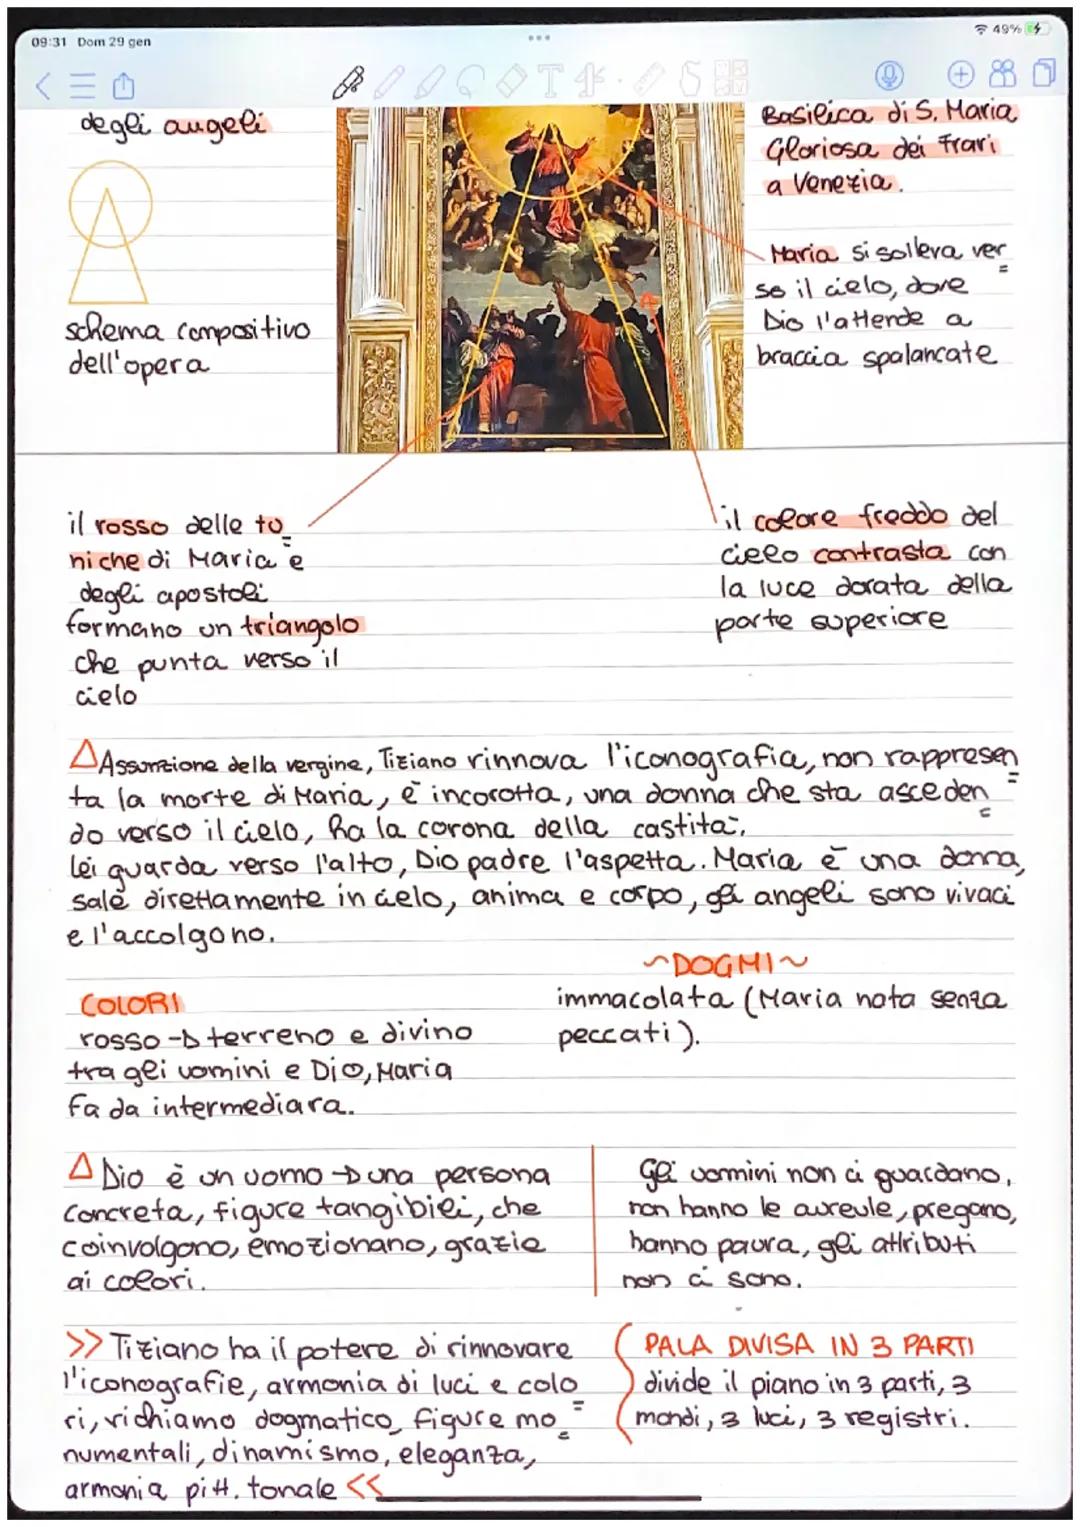 09:31 Dom 29 gen
49%
degli angeli
schema compositivo
dell'opera
Basilica di S. Maria
Gloriosa dei Frari
a Venezia.
Maria si solleva ver
so il cielo, dove
Dio l'attende a
braccia spalancate
il rosso delle to
niche di Maria e
degli apostoli
formano un triangolo
che punta verso il
cielo
il colore freddo del
cielo contrasta con
la luce dorata della
parte superiore
Assunzione della vergine, Tiziano rinnova l'iconografia, non rappresen
ta la morte di Maria, è incorotta, una donna che sta asceden
do verso il cielo, ha la corona della castità.
lei guarda verso l'alto, Dio padre l'aspetta. Maria è una donna,
sale direttamente in cielo, anima e corpo, gli angeli sono vivaci
e l'accolgono.
COLORI
rosso → terreno e divino
tra gli uomini e Dio, Maria
fa da intermediara.
~DOGMI~
immacolata (Maria nata senza
peccati).
Dio è un uomo → una persona
concreta, figure tangibili, che
coinvolgono, emozionano, grazie
ai colori.
Gli uomini non ci guardano,
non hanno le aureule, pregano,
hanno paura, gli attributi
non ci sono.
>> Tiziano ha il potere di rinnovare
l'iconografie, armonia di luci e colo
ri, richiamo dogmatico figure mo
numentali, dinamismo, eleganza,
armonia pitt. tonale <<
PALA DIVISA IN 3 PARTI
divide il piano in 3 parti, 3
mondi, 3 luci, 3 registri.